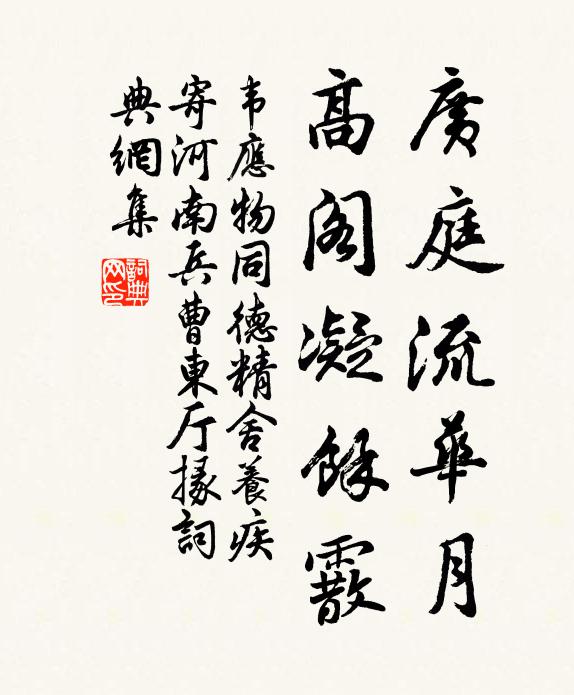 廣庭流華月
高閣凝餘霰
韦應物同德精舍養疾
寄河南兵曹東厅掾詞
典網集
詞典
网印